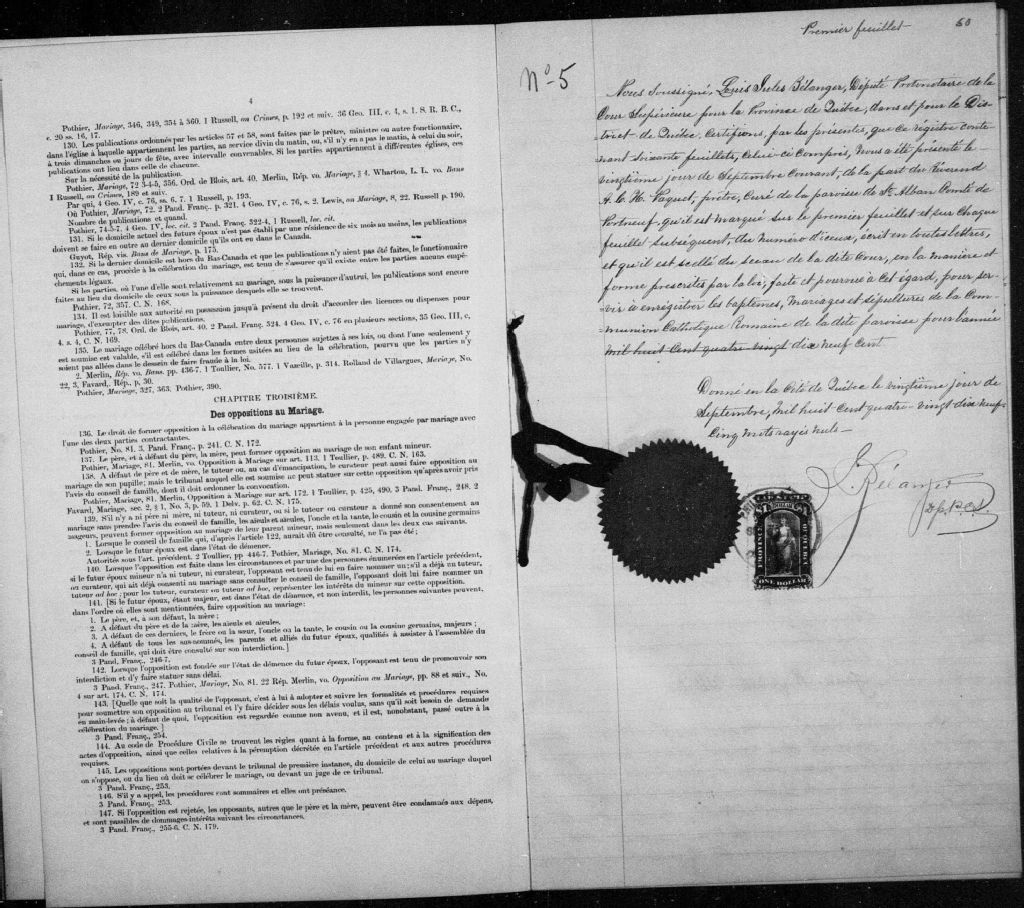 4
Pothier, Mariage, 346, 349, 354 à 360. 1 Russell, on Crimes, p. 192 et suiv. 36 Geo. III, c. 4, s. 1. S. R. B. C.,
c. 20 ss. 16, 17.
130. Les publications ordonnées par les articles 57 et 58, sont faites par le prêtre, ministre ou autre fonctionnaire,
dans l'église à laquelle appartiennent les parties, au service divin du matin, ou, s'il n'y en a pas le matin, à celui du soir,
à trois dimanches ou jours de fête, avec intervalle convenables. Si les parties appartiennent à différentes églises, ces
publications ont lieu dans celle de chacune.
Sur la nécessité de la publication.
Pothier, Mariage, 72 3-4-5, 356. Ord. de Blois, art. 40. Merlin, Rép. vo. Mariage, § 4. Wharton, L. L. vo. Bans
1 Russell, on Crimes, 189 et suiv.
Par qui, 4 Geo. IV, c. 76, ss. 6, 7. 1 Russell, p. 193.
Où Pothier, Mariage, 72. 2 Pand. Franç., p. 321. 4 Geo. IV, c. 76, s. 2. Lewis, on Mariage, 8, 22. Russell p. 190.
Nombre de publications et quand.
Pothier, 74-5-7. 4 Geo. IV, loc. cit. 2 Pand. Franç. 322-4, 1 Russell, loc. cit.
131. Si le domicile actuel des futurs époux n'est pas établi par une résidence de six mois au moins, les publications
doivent se faire en outre au dernier domicile qu'ils ont eu dans le Canada.
Guyot, Rép. vis. Bans de Mariage, p. 175.
132. Si le dernier domicile est hors du Bas-Canada et que les publications n'y aient pas été faites, le fonctionnaire
qui, dans ce cas, procède à la célébration du mariage, est tenu de s'assurer qu'il existe entre les parties aucuns empê-
chements légaux.
Si les parties, où l'une d'elle sont relativement au mariage, sous la puissance d'autrui, les publications sont encore
faites au lieu du domicile de ceux sous la puissance desquels elle se trouvent.
Pothier, 72, 357. C. N. 168.
134. Il est loisible aux autorité en possession jusqu'à présent du droit d'accorder des licences ou dispenses pour
mariage, d'exempter des dites publications.
Pothier, 77, 78. Ord. de Blois, art. 40. 2 Pand. Franç. 324. 4 Geo. IV, c. 76 en plusieurs sections, 35 Geo. III, c,
4. s. 4, C. N. 169.
135. Le mariage célébré hors du Bas-Canada entre deux personnes sujettes à ses lois, ou dont l'une seulement y
est soumise est valable, s'il est célébré dans les formes usitées au lieu de la célébration, pourvu que les parties n'y
soient pas allées dans le dessein de faire fraude à la loi.
2. Merlin, Rép. vo. Bans. pp. 436-7. 1 Toullier, No. 577. 1 Vazeille, p. 314. Rolland de Villargues, Mariage, No.
22, 3, Favard, Rép., p. 30.
Pothier, Mariage, 327, 363. Pothier, 390.
CHAPITRE TROISIÈME.
Des oppositions au Mariage.
136. Le droit de former opposition à la célébration du mariage appartient à la personne engagée par mariage avec
l'une des deux parties contractantes.
Pothier, No. 81. 3. Pand. Franç., p. 241. C. N. 172.
137. Le père, et à défaut du père, la mère, peut former opposition au mariage de son enfant mineur.
Pothier, Mariage, 81. Merlin, vo. Opposition à Mariage sur art. 113. 1 Toullier, p. 489. C. N. 163.
138. A défaut de père et de mère, le tuteur ou, au cas d'émancipation, le curateur peut aussi faire opposition au
mariage de son pupille; mais le tribunal auquel elle est soumise ne peut statuer sur cette opposition qu'après avoir pris
l'avis du conseil de famille, dont il doit ordonner la convocation.
Pothier, Mariage, 81. Merlin, Opposition à Mariage sur art. 172. 1 Toullier, p. 425, 490, 3 Pand. Franç., 248. 2
Favard, Mariage, sec. 2, § 1, No. 3, p. 59. 1 Delv. p. 62. C. N. 175.
139. S'il n'y a ni père ni mère, ni tuteur, ni curateur, ou si le tuteur ou curateur a donné son consentement au
mariage sans prendre l'avis du conseil de famille, les aïeuls et aïeules, l'oncle et la tante, le cousin et la cousine germains
majeurs, peuvent former opposition au mariage de leur parent mineur, mais seulement dans les deux cas suivants.
1. Lorsque le conseil de famille qui, d'après l'article 122, aurait dû être consulté, ne l'a pas été;
2. Lorsque le futur époux est dans l'état de démence.
Autorités sous l'art. précédent. 2 Toullier, pp 446-7. Pothier, Mariage, No. 81. C. N. 174.
140. Lorsque l'opposition est faite dans les circonstances et par une des personnes énumérées en l'article précédent,
si le futur époux mineur n'a ni tuteur, ni curateur, l'opposant est tenu de lui en faire nommer un; s'il a déjà un tuteur,
ou curateur, qui ait déjà consenti au mariage sans consulter le conseil de famille, l'opposant doit lui faire nommer un
tuteur ad hoc; pour les tuteur, curateur ou tuteur ad hoc, représenter les intérêts du mineur sur cette opposition.
141. [Si le futur époux, étant majeur, est dans l'état de démence, et non interdit, les personnes suivantes peuvent,
dans l'ordre où elles sont mentionnées, faire opposition au mariage:
1. Le père, et, à son défaut, la mère;
2. A défaut du père et de la mère, les aïeuls et aïeules.
3. A défaut de ces derniers, le frère ou la sœur, l'oncle ou la tante, le cousin ou la cousine germains, majeurs;
4. A défaut de tous les sus-nommés, les parents et alliés du futur époux, qualifiés à assister à l'assemblée du
conseil de famille, qui doit être consulté sur son interdiction.]
3 Pand. Franç., 246-7.
142. Lorsque l'opposition est fondée sur l'état de démence du futur époux, l'opposant est tenu de promouvoir son
interdiction et d'y faire statuer sans délai.
3 Pand. Franç., 247. Pothier, Mariage, No. 81. 22 Rép. Merlin, vo. Opposition au Mariage, pp. 88 et suiv., No.
4 sur art. 174, C. N. 174.
143. [Quelle que soit la qualité de l'opposant, c'est à lui à adopter et suivre les formalités et procédures requises
pour soumettre son opposition au tribunal et l'y faire décider sous les délais voulus, sans qu'il soit besoin de demande
en main-levée; à défaut de quoi, l'opposition est regardée comme non avenu, et il est, nonobstant, passé outre à la
célébration du mariage.]
3 Pand. Franç., 254.
144. Au code de Procédure Civile se trouvent les règles quant à la forme, au contenu et à la signification des
actes d'opposition, ainsi que celles relatives à la péremption décrétée en l'article précédent et aux autres procédures
requises.
145. Les oppositions sont portées devant le tribunal de première instance, du domicile de celui au mariage duquel
on s'oppose, ou du lieu où doit se célébrer le mariage, ou devant un juge de ce tribunal.
3 Pand. Franç., 253.
146. S'il y a appel, les procédures sont sommaires et elles ont préséance.
3 Pand. Franç., 253.
147. Si l'opposition est rejetée, les opposants, autres que le père et la mère, peuvent être condamnés aux dépens,
et sont passibles de dommages-intérêts suivant les circonstances.
3 Pand. Franç., 255-6. C. N. 179.
Premier feuillet
60
No 5
Nous soussigné, Louis Jules Bélanger, Député Protonotaire de la
Cour Supérieure pour la Province de Québec, dans et pour le Dis-
trict de Québec. Certifions, par les présentes, que ce régistre conte-
nant soixante feuillets, celui-ci compris, nous a été présenté le
vingtième jour de Septembre Courant, de la part du Révérend
A. C. H. Paquet, prêtre, Curé de la paroisse de St Alban Comté de
Portneuf, qu'il est marqué sur le premier feuillet et sur chaque
feuillet subséquent, du numéro d'iceux, écrit en toutes lettres,
et qu'il est scellé du sceau de la dite Cour, en la manière et
forme prescrites par la loi, faite et pourvue à cet égard, pour ser-
vir à enrégistrer les baptêmes, Mariages et sépultures de la Com-
munion Catholique Romaine de la dite paroisse pour l'année
mil huit cent quatre-vingt dix neuf cent
Donné en la Cité de Québec le vingtième jour de
Septembre, mil huit cent quatre-vingt dix neuf
Cinq mots rayés nuls-
L. J. Bélanger
Dep. P.C.S.
LAW STAMP
$1
PROVINCE OF QUEBEC
ONE DOLLAR